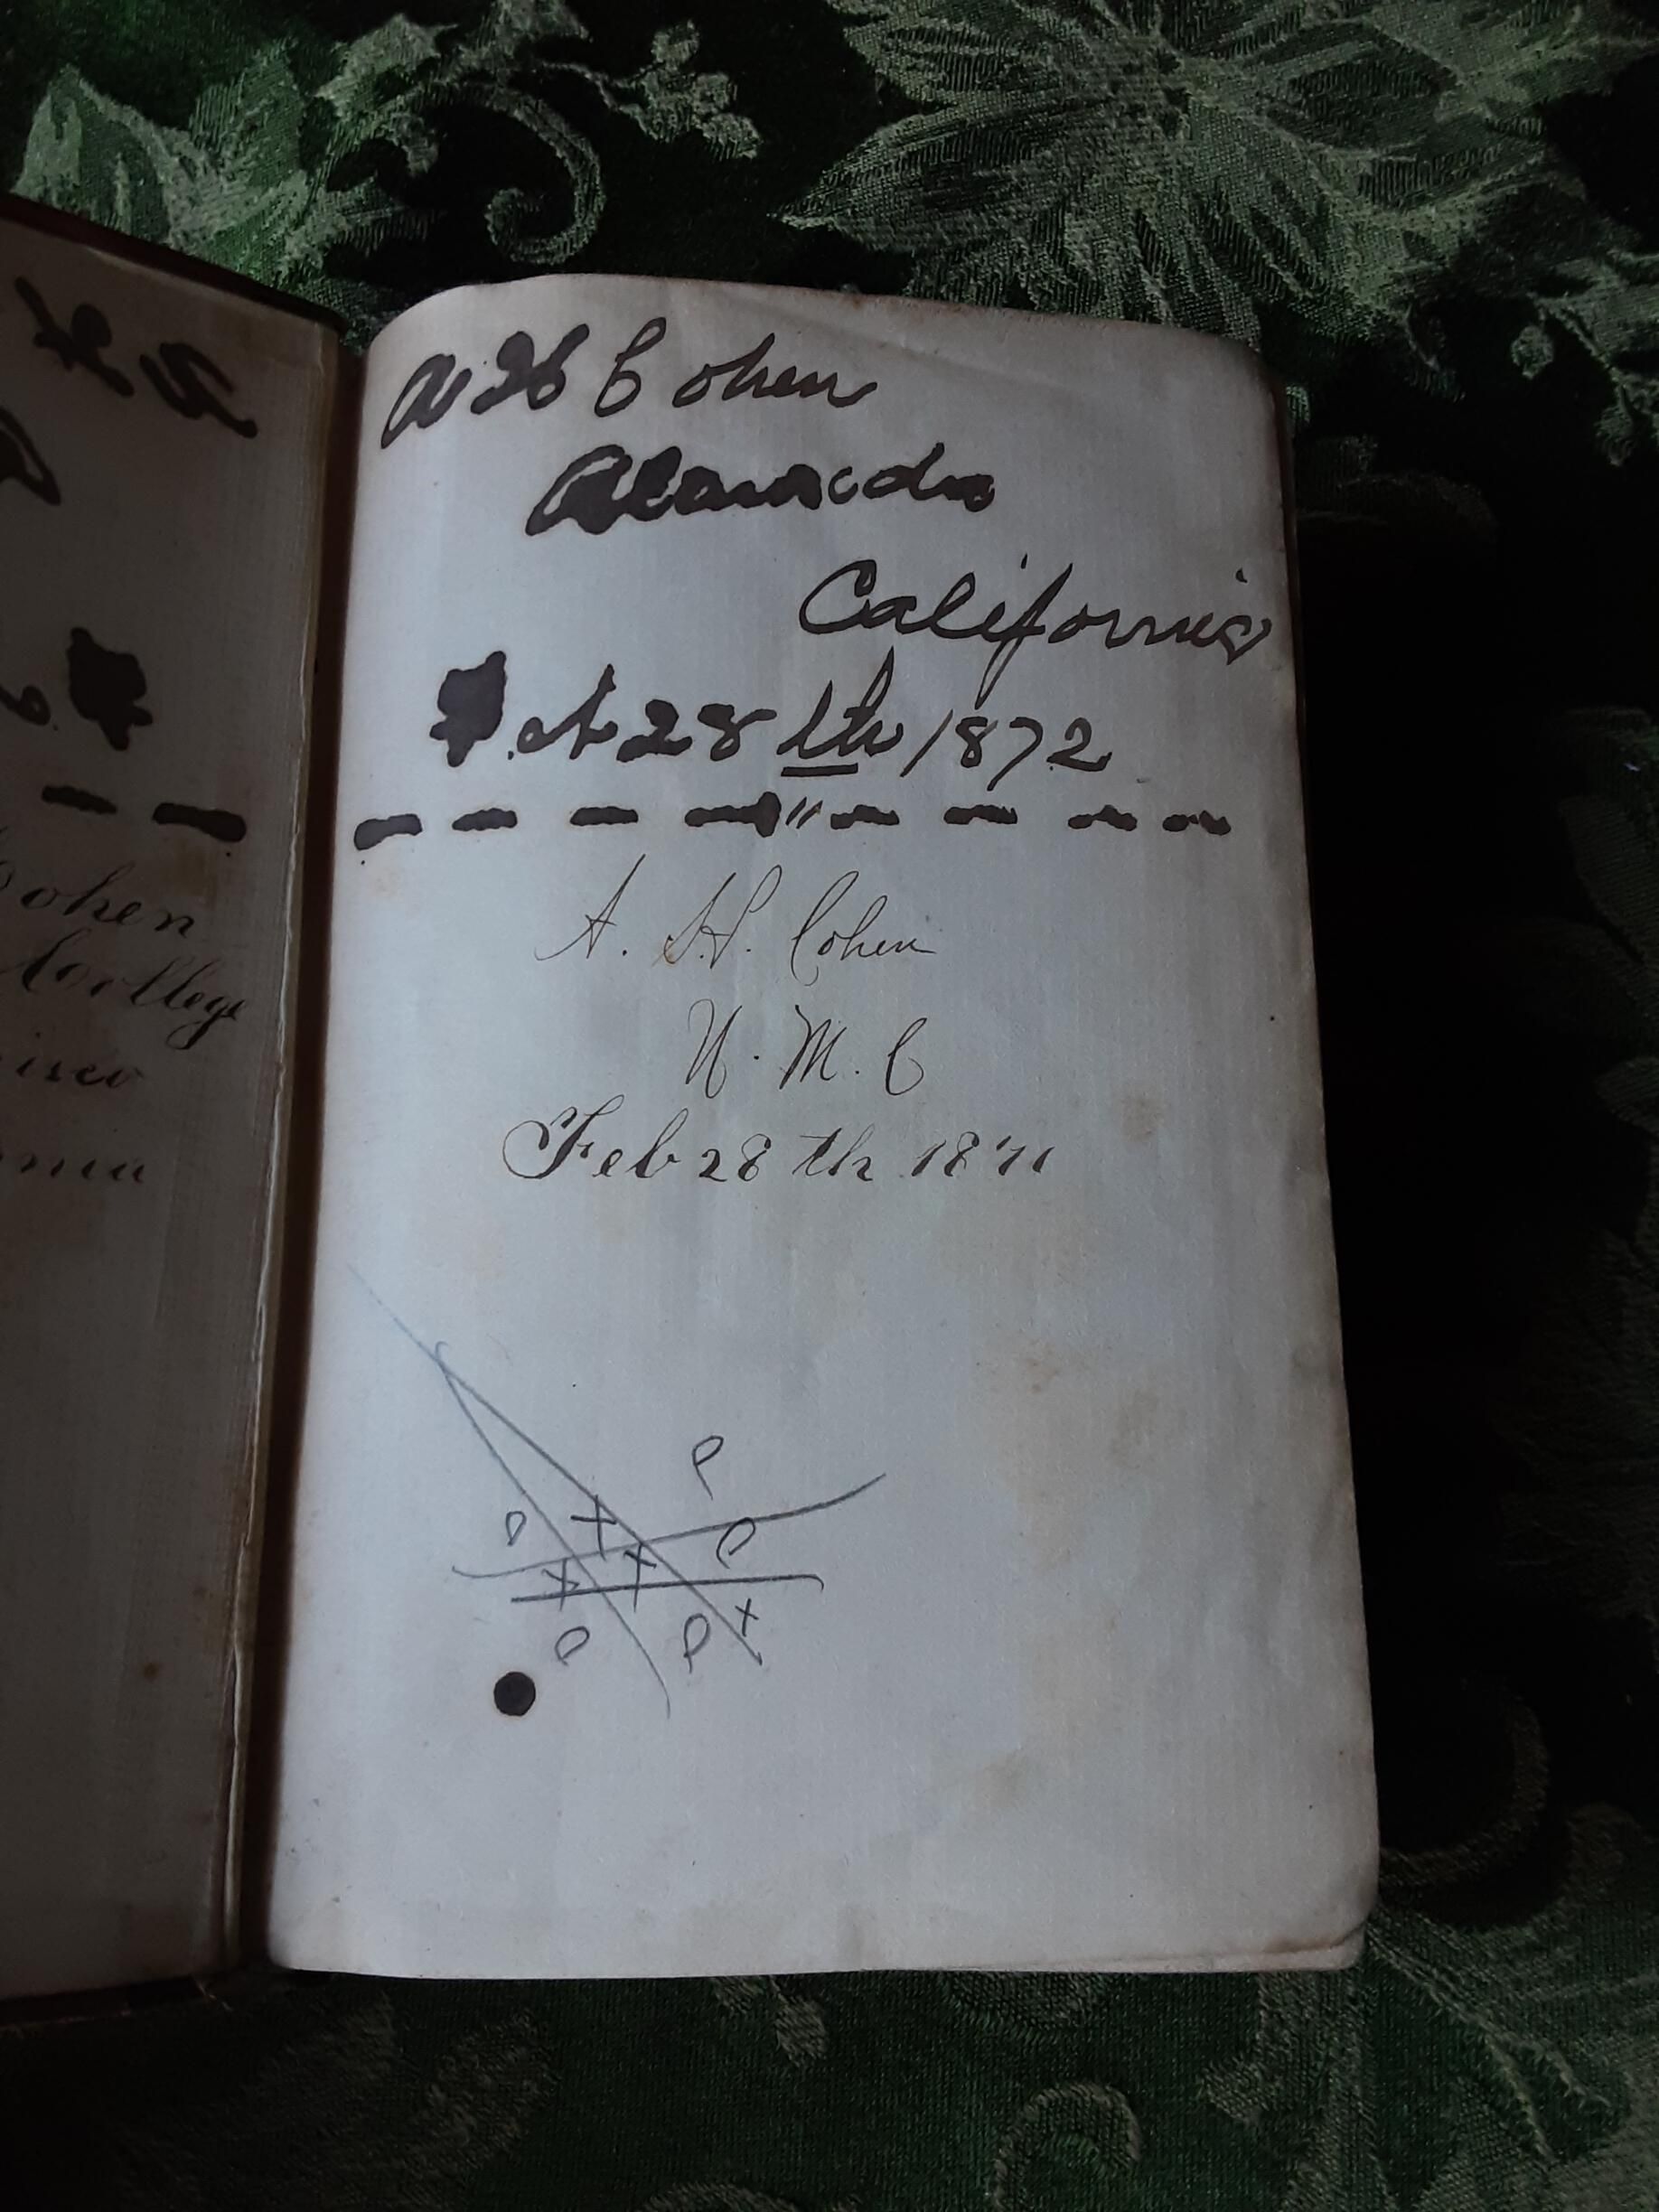 Cohen
College
isco
rnia
A H Cohen
Alameda
California
28 th 1872
A. H. Cohen
U. M. C
Feb 28 th 1871
O
O X O
X X
O O X